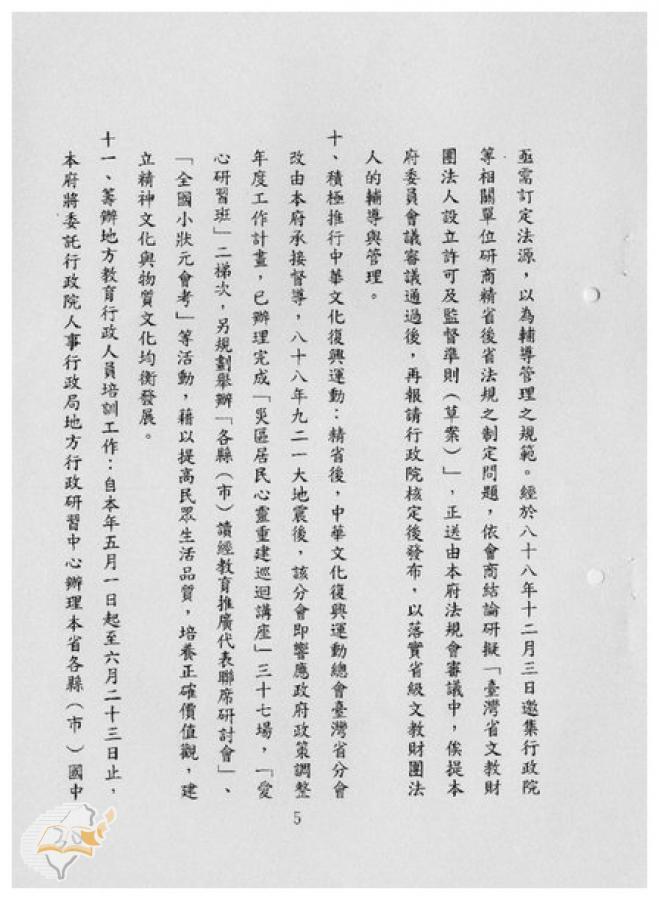 亟需訂定法源，以為輔導管理之規範。經於八十八年十二月三日邀集行政院
等相關單位研商精省後省法規之制定問題，依會商結論研擬「臺灣省文教財
團法人設立許可及監督準則（草案）」，正送由本府法規會審議中，俟提本
府委員會議審議通過後，再報請行政院核定後發布，以落實省級文教財團法
人的輔導與管理。
十、積極推行中華文化復興運動：精省後，中華文化復興運動總會臺灣省分會
改由本府承接督導，八十八年九二一大地震後，該分會即響應政府政策調整
年度工作計畫，已辦理完成「災區居民心靈重建巡迴講座」三十七場，「愛
心研習班」二梯次，另規劃舉辦「各縣（市）讀經教育推廣代表聯席研討會」、
「全國小狀元會考」等活動，藉以提高民眾生活品質，培養正確價值觀，建
立精神文化與物質文化均衡發展。
十一、籌辦地方教育行政人員培訓工作：自本年五月一日起至六月二十三日止，
本府將委託行政院人事行政局地方行政研習中心辦理本省各縣（市）國中
5